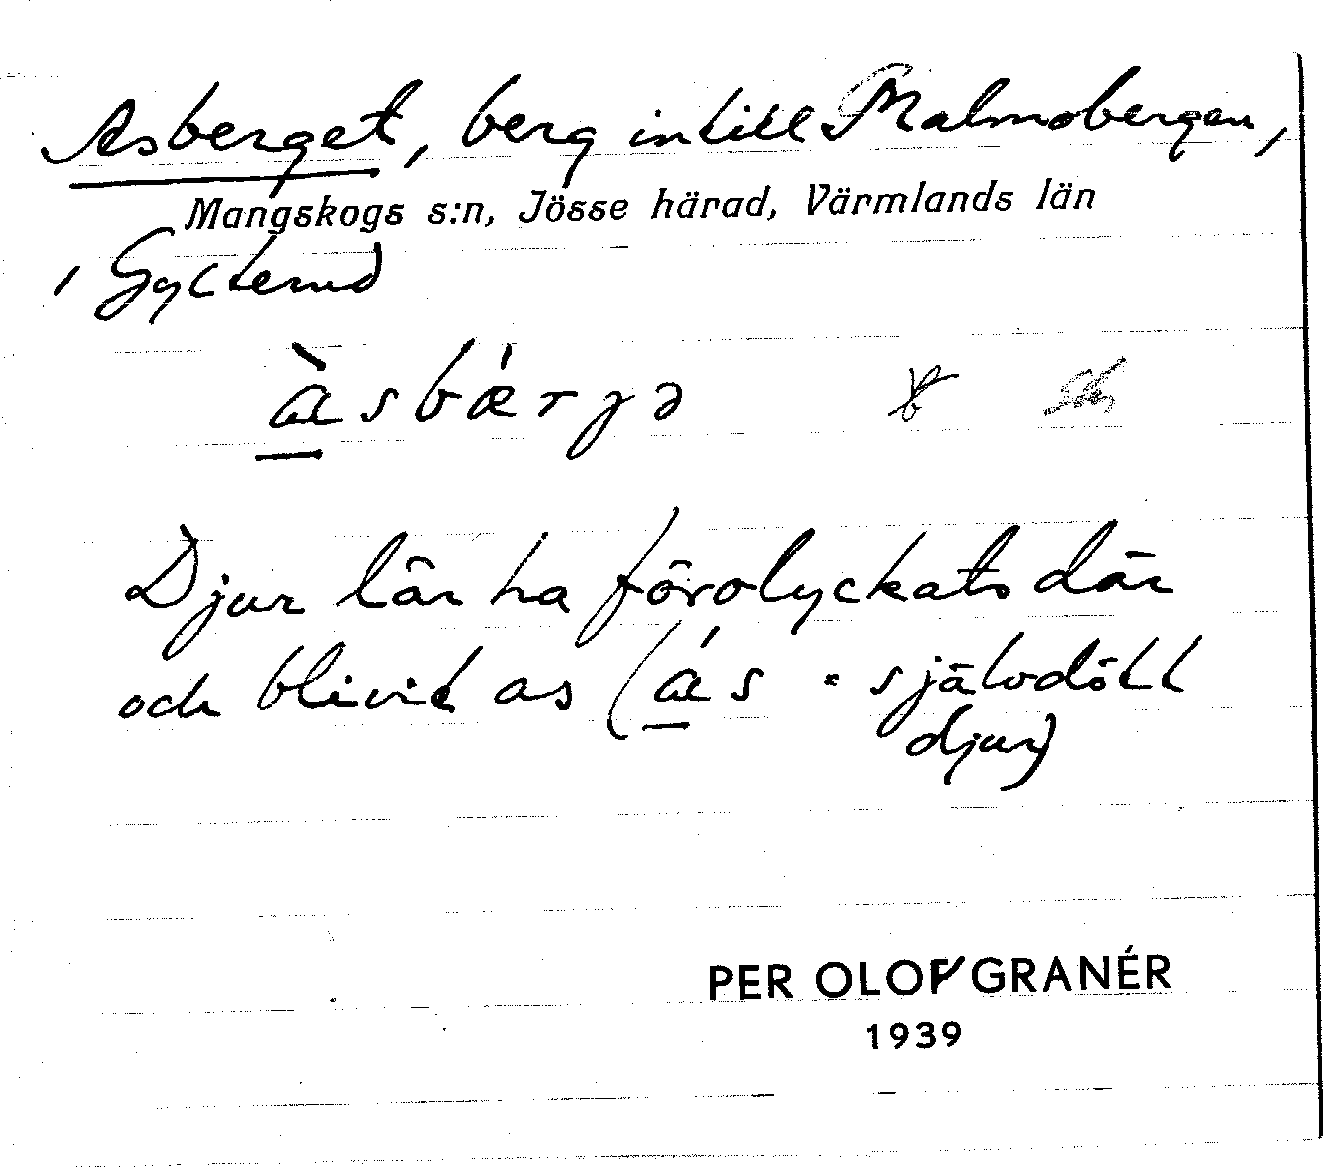 Asberget, berg intill Malmobergen,
Mangskogs s:n, Jösse härad, Värmlands län
i Gylterud
à̲sbǽrjə
Djur lär ha förolyckats där
och blivit as (á̲s = självdött
djur)
PER OLOF GRANÉR
1939